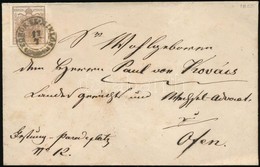 Sr Wohlgeboren
dem Herren Paul von Kovács
Landes Gerichts und Wechsel-Advocat
zu
Festung-Paradeplatz Ofen.
No 12.